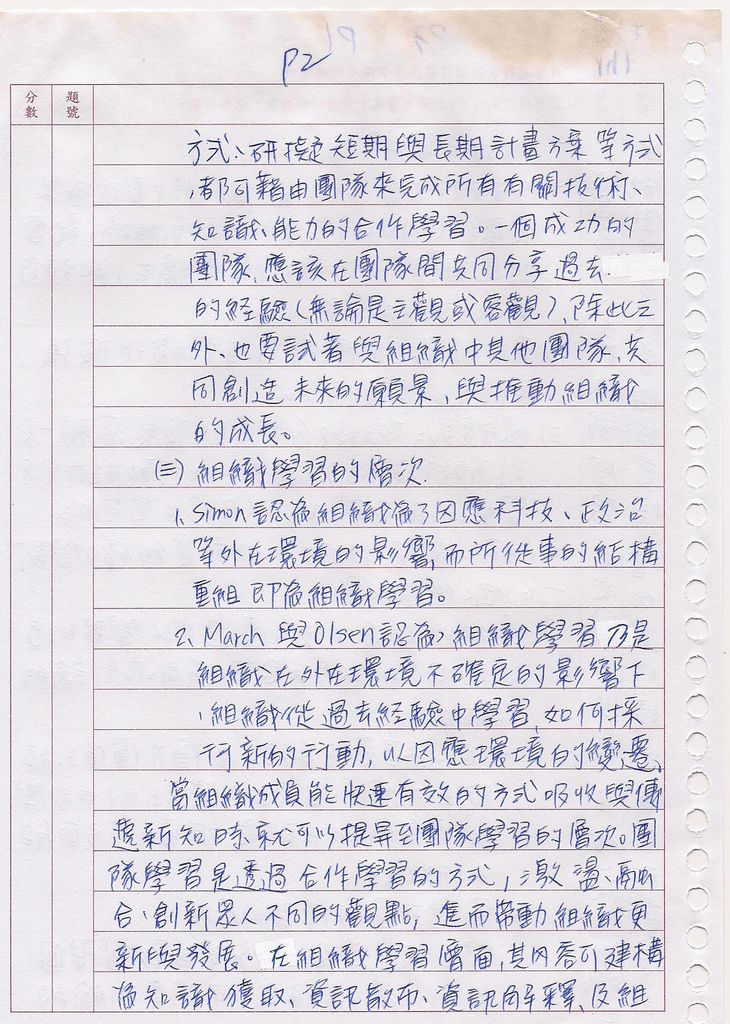 P2
分數 題號
方式、研擬短期與長期計畫方案等方式
,都可藉由團隊來完成所有有關技術、
知識、能力的合作學習。一個成功的
團隊,應該在團隊間共同分享過去
的經驗(無論是主觀或客觀),除此之
外,也要試著與組織中其他團隊,共
同創造未來的願景,與推動組織
的成長。
(三)組織學習的層次
1、Simon認為組織為了因應科技、政治
等外在環境的影響,而所從事的結構
重組即為組織學習。
2、March與Olsen認為,組織學習乃是
組織在外在環境不確定的影響下
,組織從過去經驗中學習,如何採
行新的行動,以因應環境的變遷。
當組織成員能快速有效的方式吸收與傳
遞新知時,就可以提昇至團隊學習的層次。團
隊學習是透過合作學習的方式,激盪、融
合、創新眾人不同的觀點,進而帶動組織更
新與發展。在組織學習層面,其內容可建構
為知識獲取、資訊散布、資訊解釋、及組